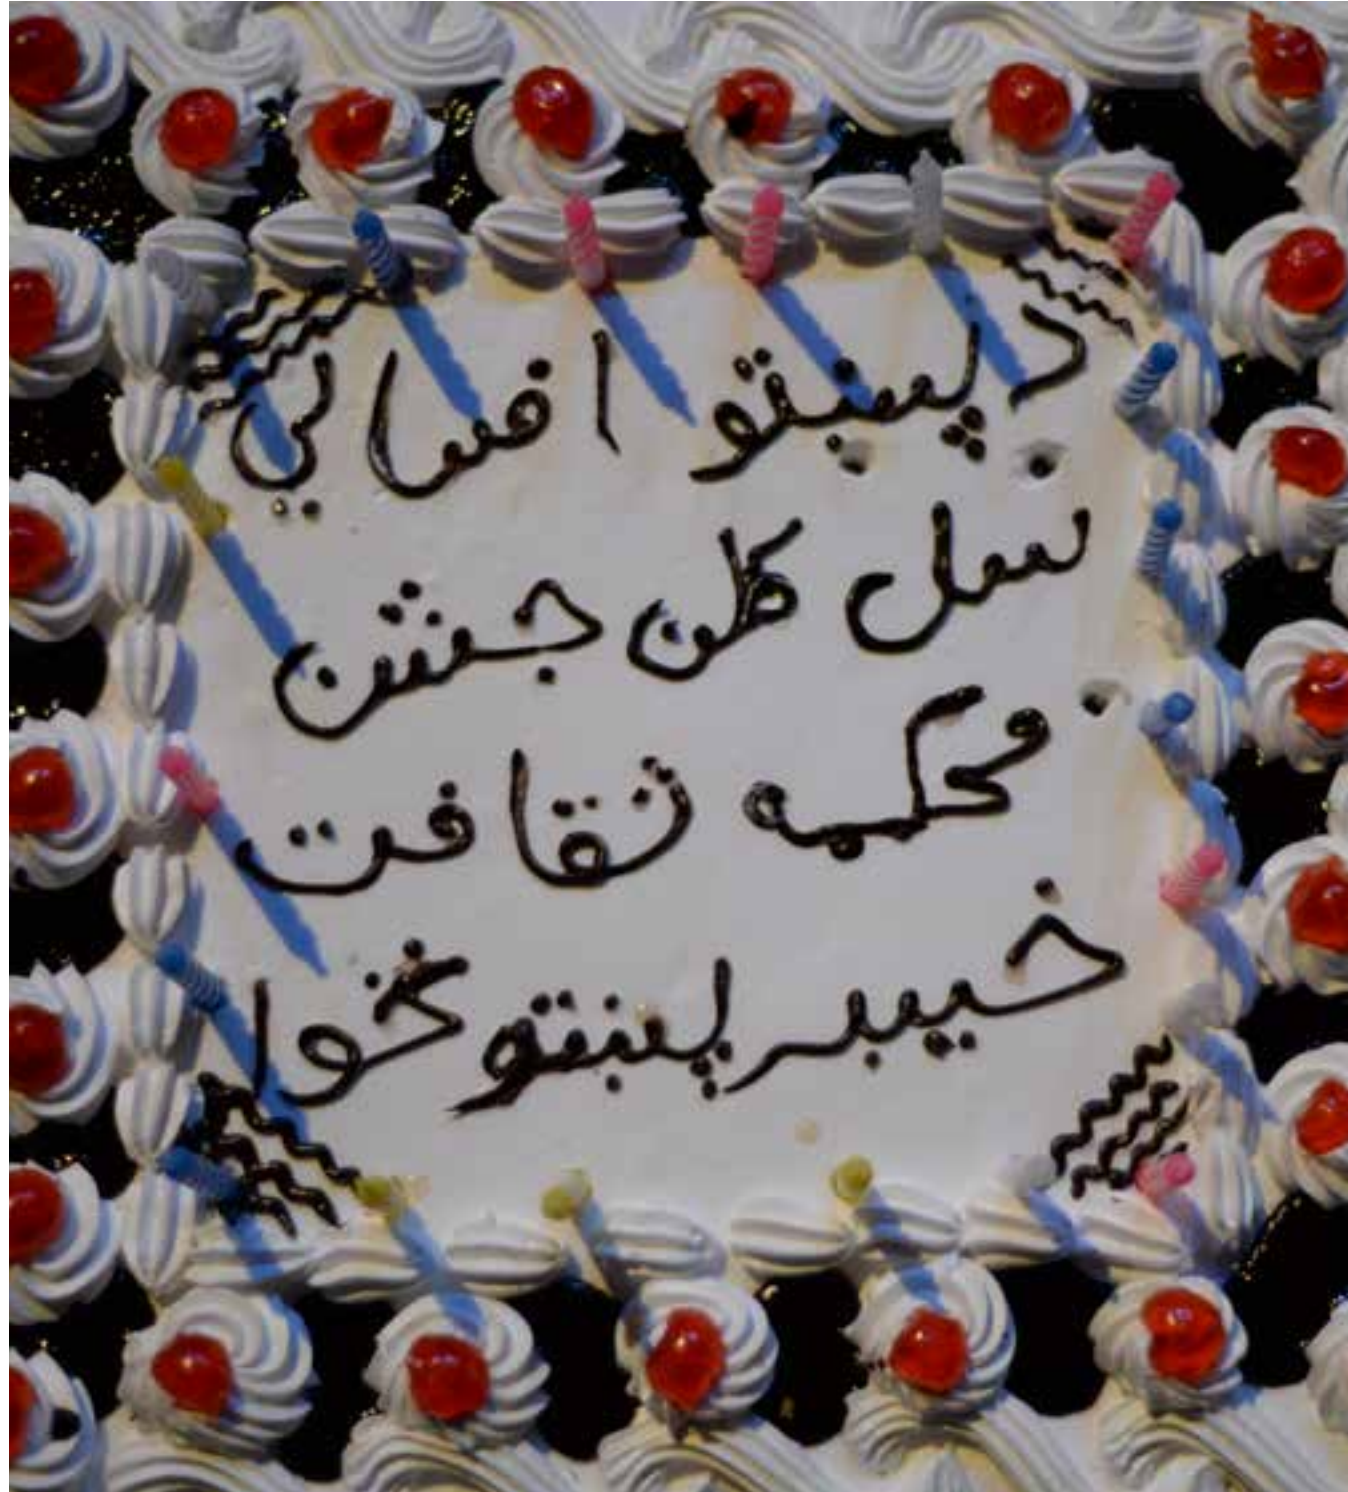 د پښتو افسانې
سل کلن جشن
محکمه ثقافت
خیبر پښتونخوا